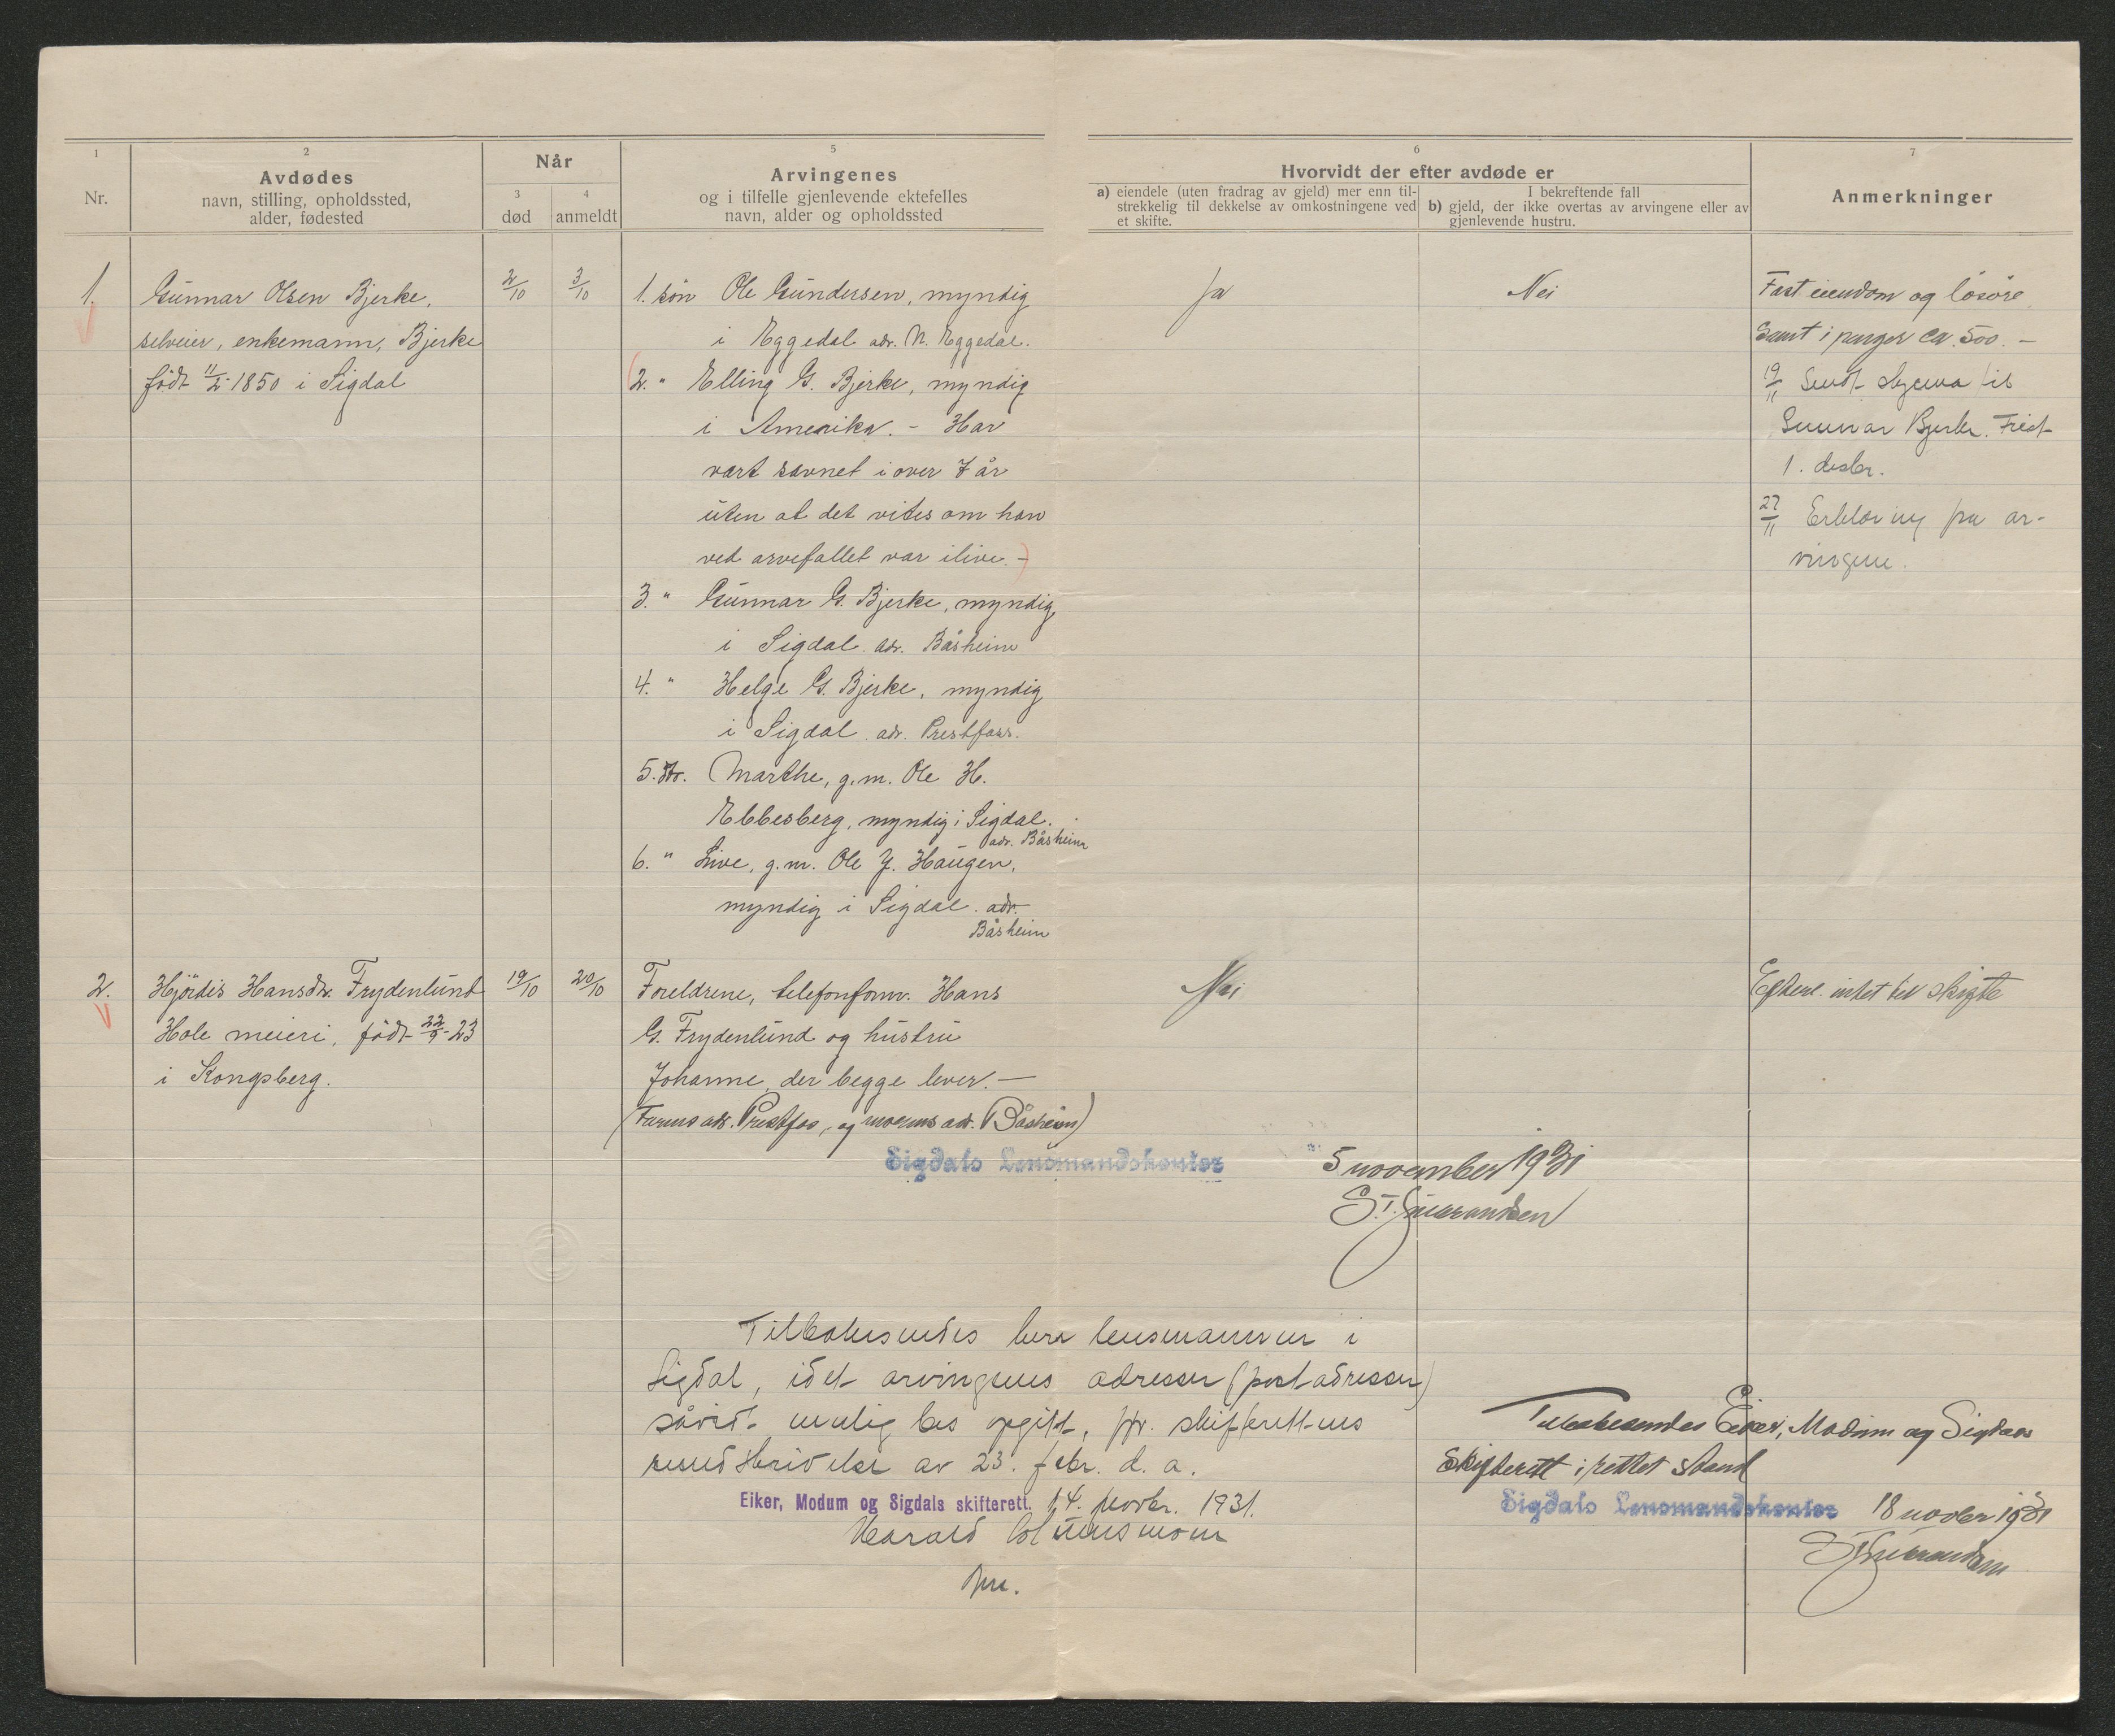 1
Nr.
2
Avdødes
navn, stilling, opholdssted,
alder, fødested
Når
3
død
4
anmeldt
5
Arvingenes
og i tilfelle gjenlevende ektefelles
navn, alder og opholdssted
6
Hvorvidt der efter avdøde er
a) eiendele (uten fradrag av gjeld) mer enn til-
strekkelig til dekkelse av omkostningene ved
et skifte.
I bekreftende fall
b) gjeld, der ikke overtas av arvingene eller av
gjenlevende hustru.
7
Anmerkninger
1.
Gunnar Olsen Bjerke,
selveier, enkemann, Bjerke
født 11/2-1850 i Sigdal
2/10
3/10
1. søn Ole Gundersen, myndig
i Eggedal adr. N. Eggedal.
(2. " Elling G. Bjerke, myndig
i Amerika. - Har
vært savnet i over 7 år
uten at det vites om han
ved arvefallet var ilive. -)
3. " Gunnar G. Bjerke, myndig
i Sigdal adr. Båsheim
4. " Helge G. Bjerke, myndig
i Sigdal adr. Prestfoss.
5. dtr. Marthe, g.m. Ole H.
Ebbesberg, myndig i Sigdal.
adr. Båsheim
6. " Live, g.m. Ole J. Haugen,
myndig i Sigdal. adr.
Båsheim
Ja
Nei
Fast eiendom og løsøre
samt i penger ca. 500. -
19/11 Sendt skjema til
Gunnar Bjerke. Frist
1. desbr.
27/11 Erklæring fra ar-
vingene.
2.
Hjørdis Hansdtr. Frydenlund
Hole meieri, født 22/9-23
i Kongsberg.
19/10
20/10
Foreldrene, telefonform. Hans
G. Frydenlund og hustru
Johanne, der begge lever. -
(Farens adr. Prestfos, og moerens adr. Båsheim)
Nei
Efterl. intet til skifte
Sigdals Lensmandskontor
5 november 1931
Tilbakesendes herr lensmannen i
Sigdal, idet arvingenes adresser (postadresser)
såvidt mulig bes opgitt, jfr. skifterettens
rundskrivelse av 23. febr. d. a.
Eiker, Modum og Sigdals skifterett. 14. novbr. 1931.
Harald
Tilbakesendes Eiker, Modum og Sigdals
Skifterett i rettet stand
Sigdals Lensmandskontor 18 novbr 1931